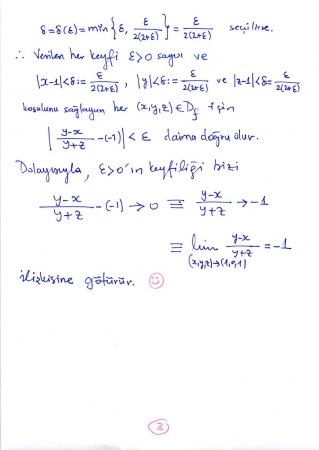 δ=δ(ε)=min{ε, ε/2(2+ε)} = ε/2(2+ε) seçilirse.
∴ Verilen her keyfi ε>0 sayısı ve
|x-1|<δ:= ε/2(2+ε), |y|<δ:= ε/2(2+ε) ve |z-1|<δ= ε/2(2+ε)
koşulunu sağlayan her (x,y,z)∈D_f için
| (y-x)/(y+z) -(-1)| < ε daima doğru olur.
Dolayısıyla, ε>0'ın keyfiliği bizi
(y-x)/(y+z) -(-1) → 0 ≡ (y-x)/(y+z) → -1
≡ lim_{(x,y,z)→(1,0,1)} (y-x)/(y+z) = -1
ilişkisine götürür.
3